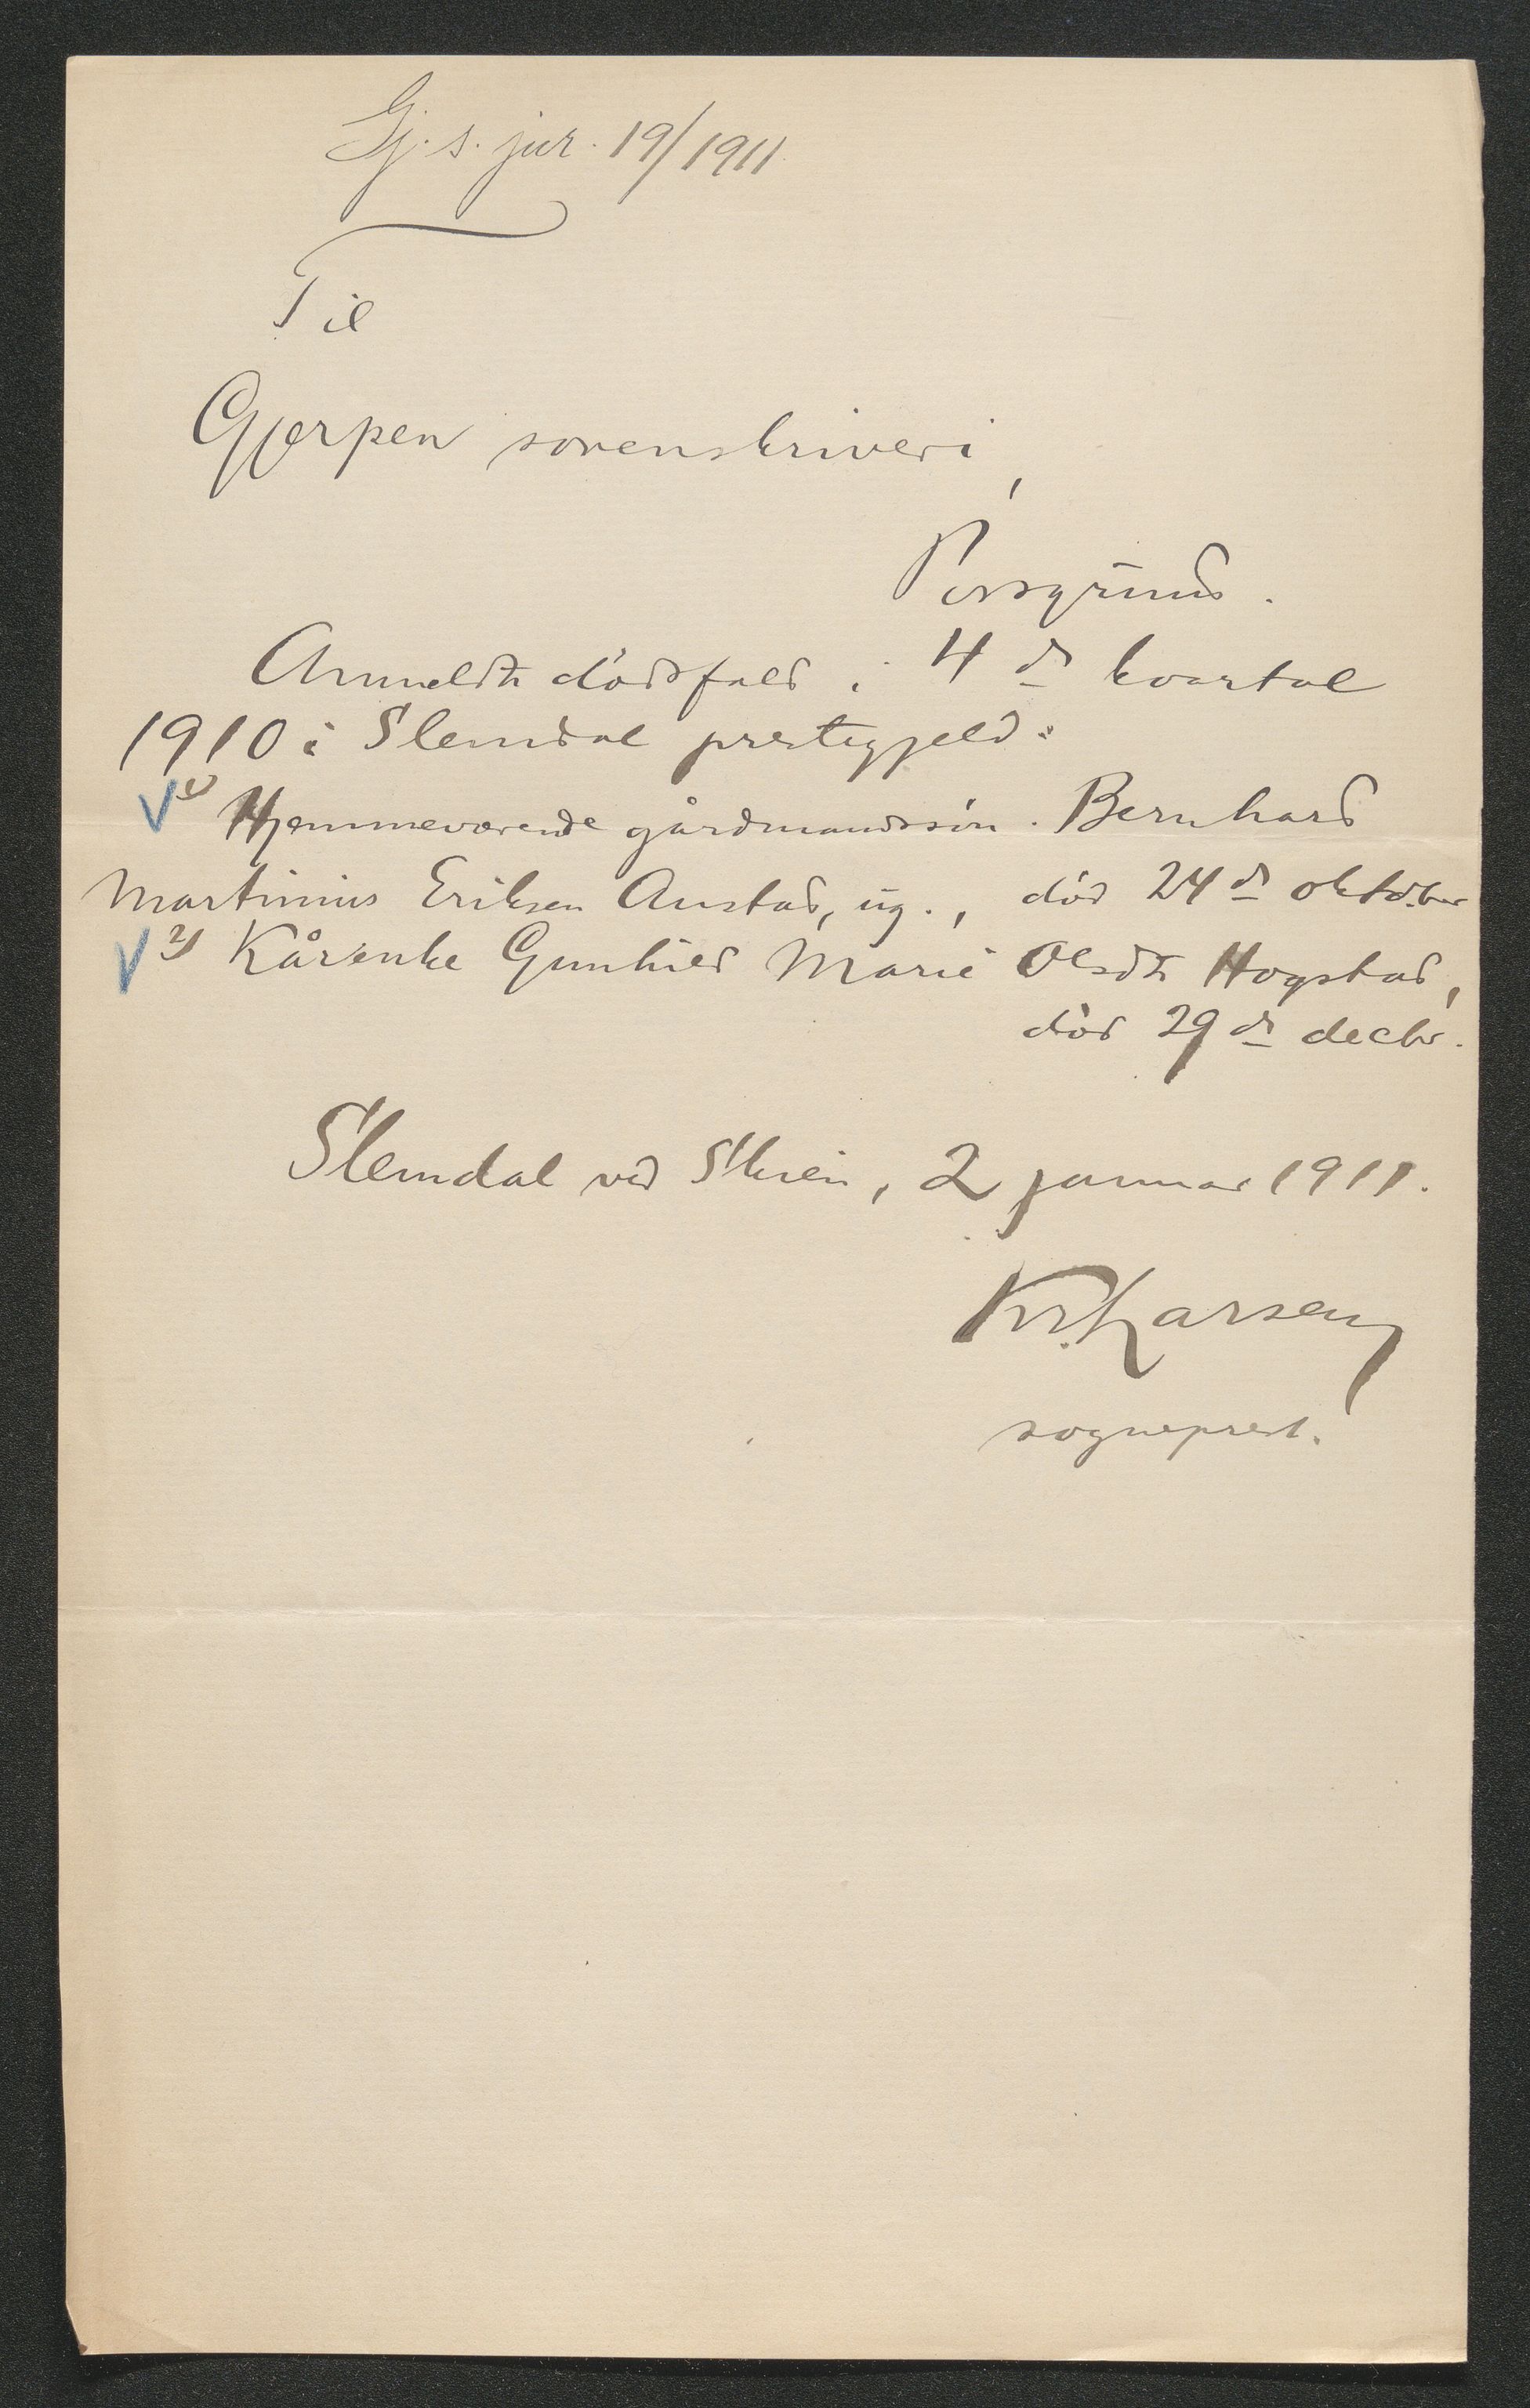 Gj. s. jur. 19/1911.
Til
Gjerpen sorenskriveri,
Porsgrund.
Anmeldte dødsfald i 4de kvartal
1910 i Slemdal prestegjeld:
1) Hjemmeværende gårdmandssøn Bernhard
Martinius Eriksen Austad, ug., død 24de oktober
2) Kårenke Gunhild Marie Olsdtr Hogstad,
død 29de decbr.
Slemdal vd Skien, 2 januar 1911.
Kr. Larsen
sogneprest.